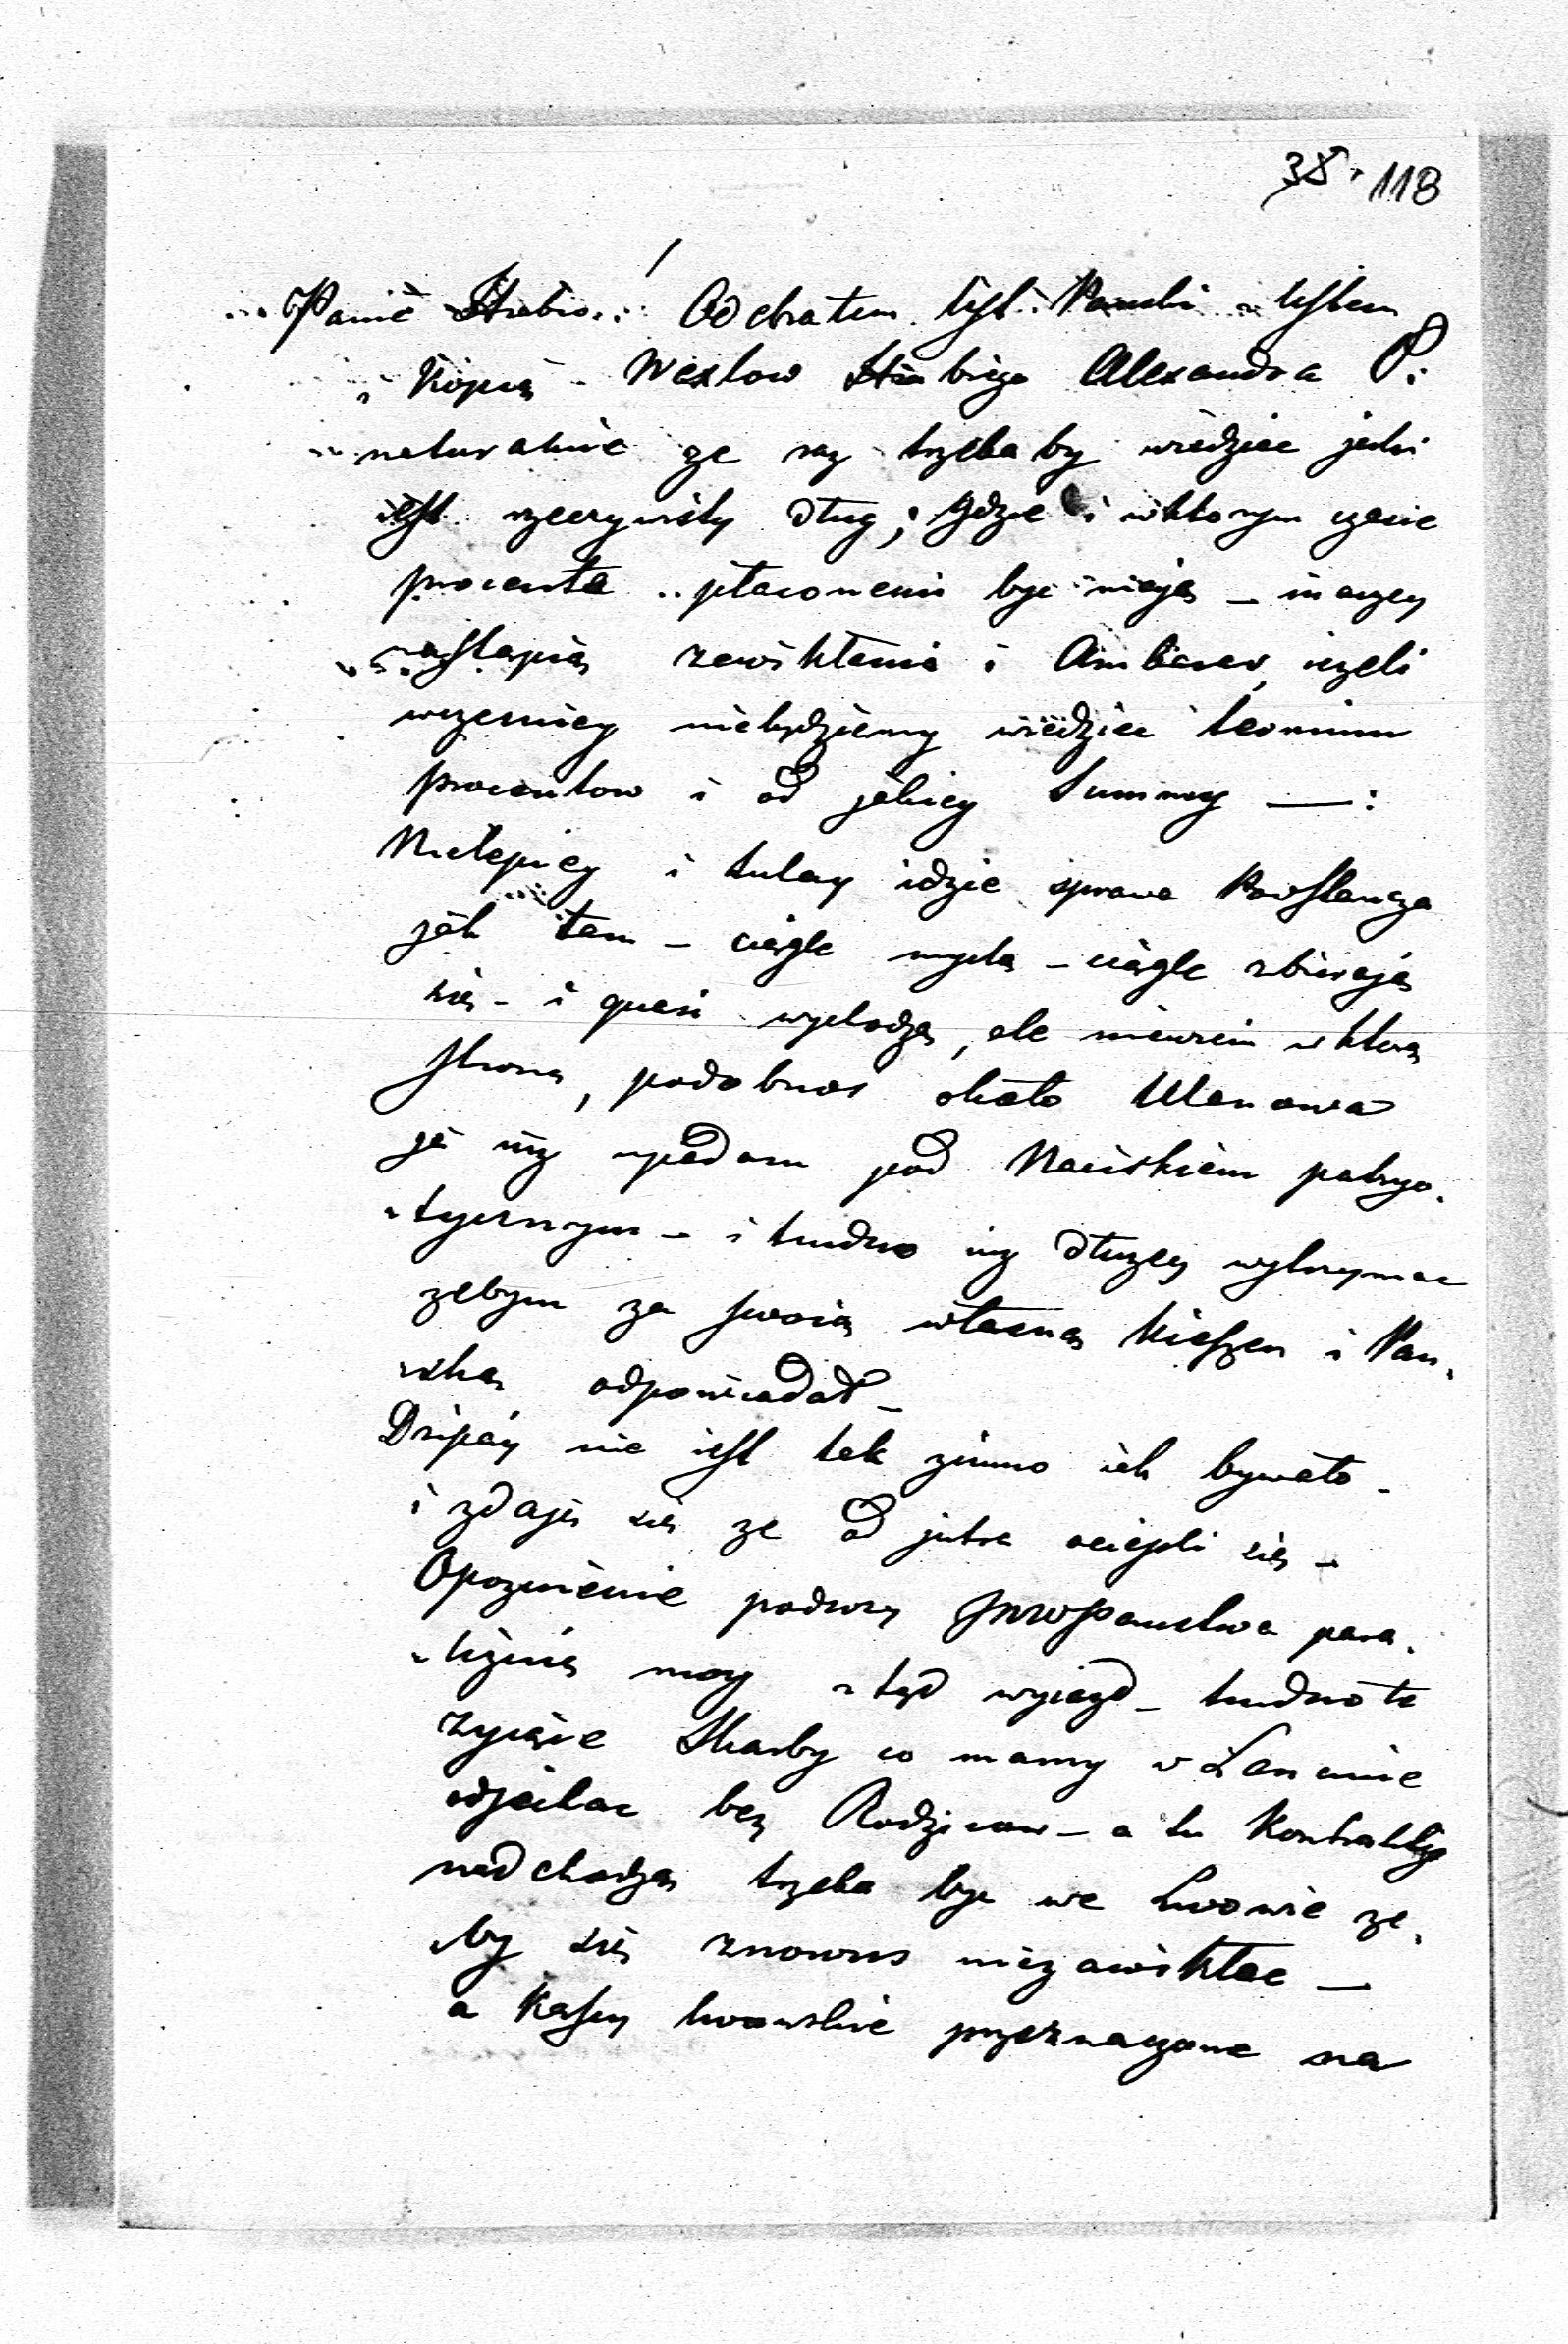 38. 118
Panie Hrabio! Odebrałem list Pański z listem
i Kopią Wexlow Hrabiego Alexandra P:
naturalnie ze raz trzebaby wiedziec jaki
iest rzeczywisty dług; gdzie i wktorym czasie
procenta płaconemi byc mają – inaczey
nastąpią zawikłania i Ambaras, iezeli
wczesniey niebędziemy wiedziec termina
procentow i od jakiey Summy —:
Nielepiey i tutay idzie sprawa Powstancza
jak tam – ciągle myslą – ciągle zbierają
się – i quasi wychodzą, ale niewiem w ktorą
stronę, podobnos okoto Ulanowa
ja iuz upadam pod Naciskiem patryo-
-tycznym – i trudno iuz dłuzey wytrzymac
zebym za swoią własną Kieszen i Pan-
-ską odpowiadał –
Dzisiay nie iest tak zimno iak bywało –
i zdaje się ze od jutra ociepli się –
Opoznienie podrozy JWWPanstwa para-
-lizuie moy z tąd wyjazd – trudno te
zyiące Skarby co mamy w Zarzeczu
odjechac bez Rodzicow – a tu Kontrakty
nadchodzą trzeba byc we Lwowie ze-
-by się znowus niezawikłac —
a Kassy lwowskie przeznaczone na